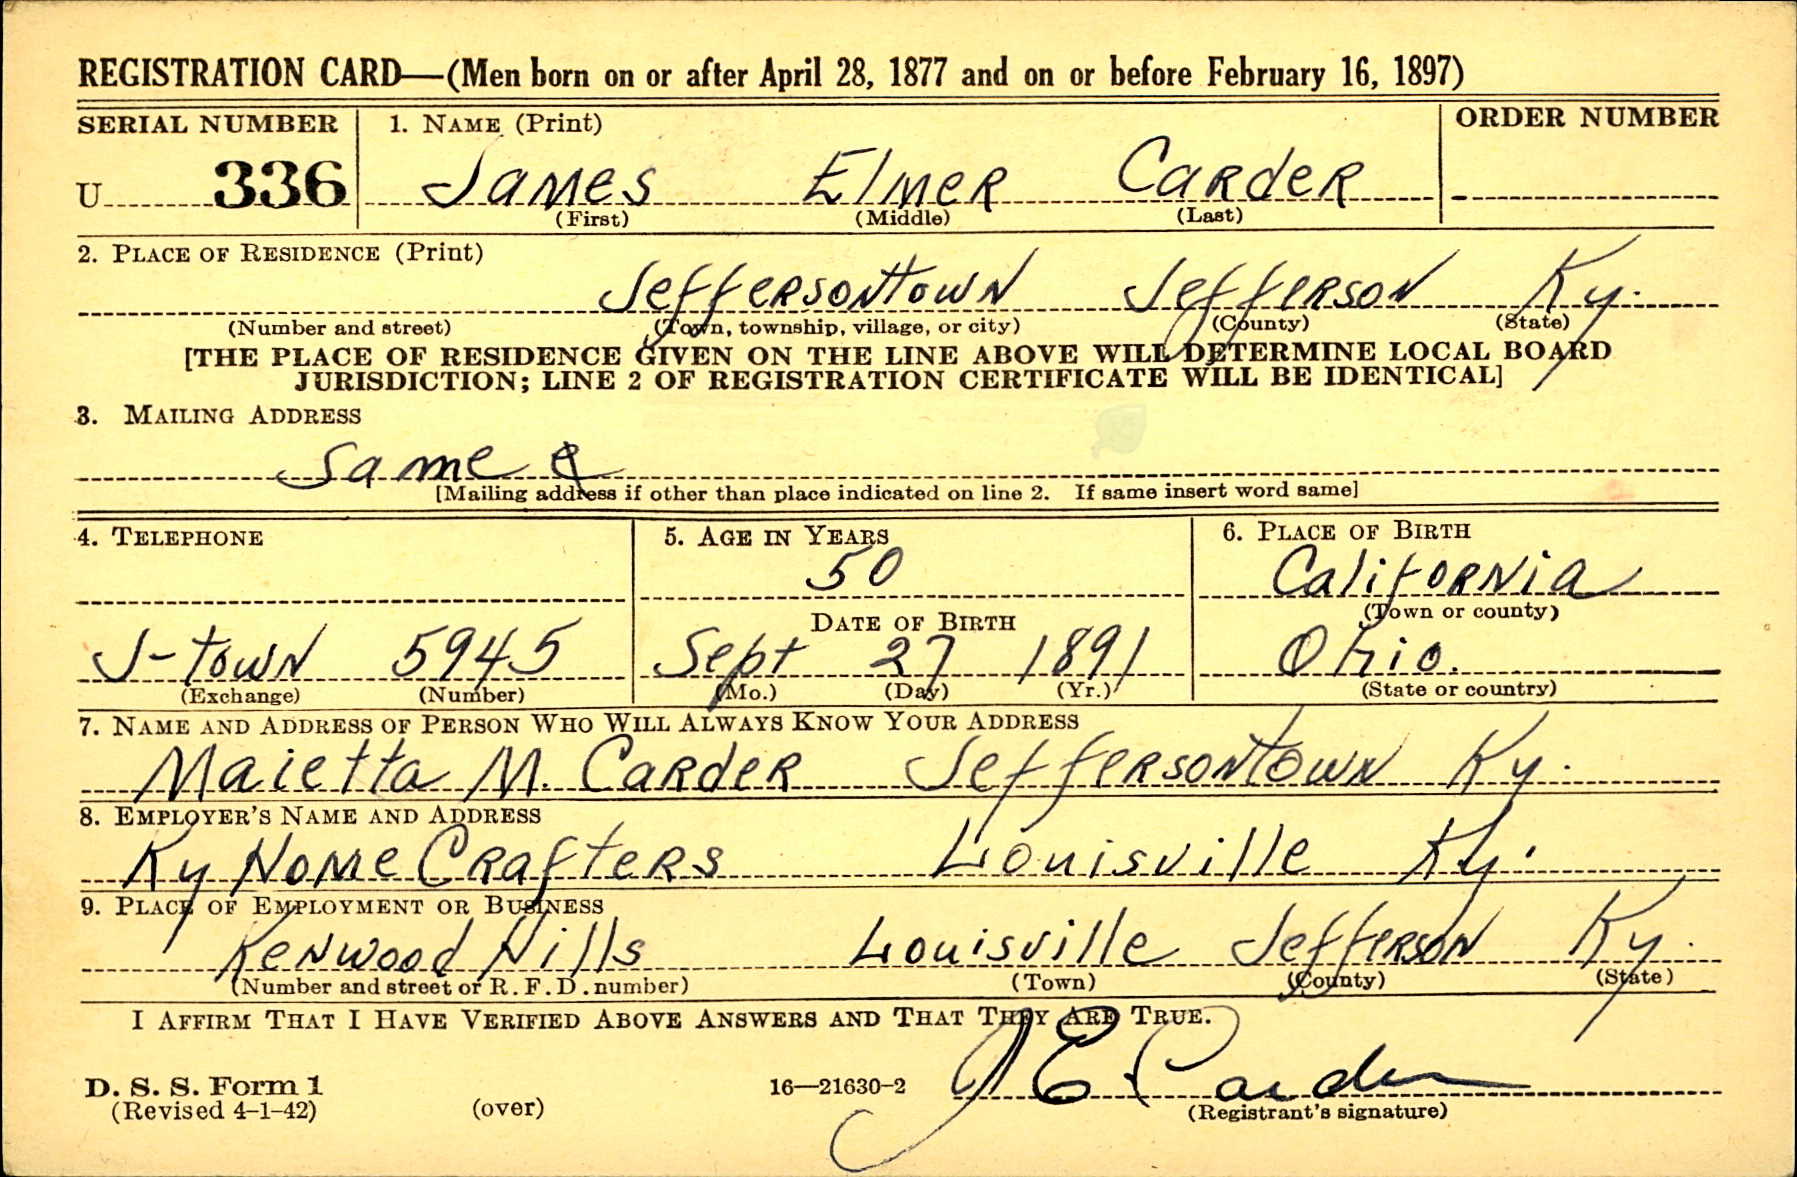 REGISTRATION CARD—(Men born on or after April 28, 1877 and on or before February 16, 1897)
SERIAL NUMBER 1. NAME (Print) ORDER NUMBER
U 336 James Elmer Carder
(First) (Middle) (Last)
2. PLACE OF RESIDENCE (Print)
Jeffersontown Jefferson Ky.
(Number and street) (Town, township, village, or city) (County) (State)
[THE PLACE OF RESIDENCE GIVEN ON THE LINE ABOVE WILL DETERMINE LOCAL BOARD
JURISDICTION; LINE 2 OF REGISTRATION CERTIFICATE WILL BE IDENTICAL]
3. MAILING ADDRESS
Same
[Mailing address if other than place indicated on line 2. If same insert word same]
4. TELEPHONE 5. AGE IN YEARS 6. PLACE OF BIRTH
50 California
DATE OF BIRTH (Town or county)
J-town 5945 Sept 27 1891 Ohio.
(Exchange) (Number) (Mo.) (Day) (Yr.) (State or country)
7. NAME AND ADDRESS OF PERSON WHO WILL ALWAYS KNOW YOUR ADDRESS
Maietta M. Carder Jeffersontown Ky.
8. EMPLOYER'S NAME AND ADDRESS
Ky Home Crafters Louisville Ky.
9. PLACE OF EMPLOYMENT OR BUSINESS
Kenwood Hills Louisville Jefferson Ky.
(Number and street or R. F. D. number) (Town) (County) (State)
I AFFIRM THAT I HAVE VERIFIED ABOVE ANSWERS AND THAT THEY ARE TRUE.
J E. Carder
D. S. S. Form 1 16—21630-2
(Revised 4-1-42) (over) (Registrant's signature)